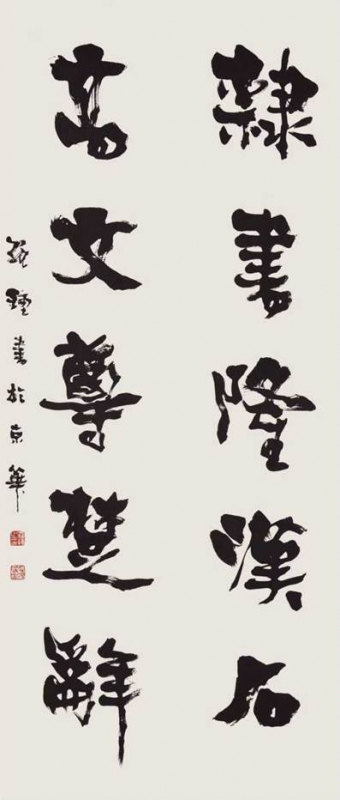 隸書隆漢石
高文尊楚辭
張鍾書於京華